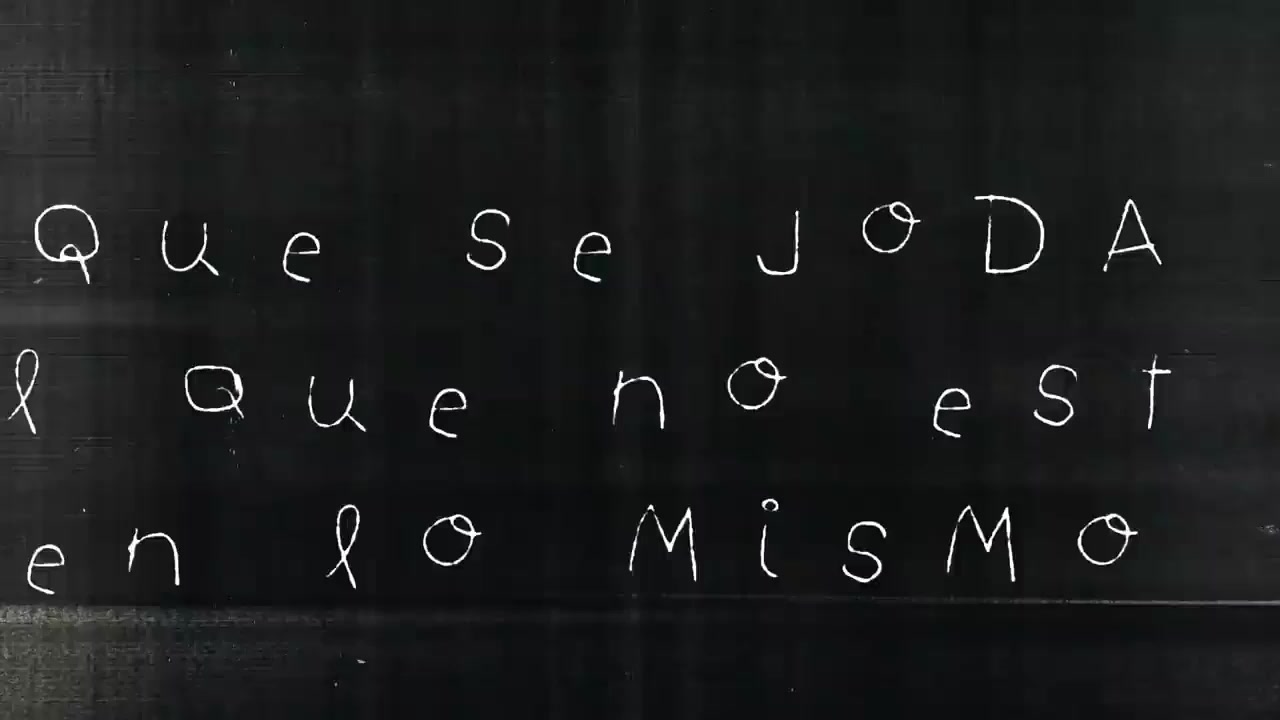 Que se JODA
l Que no est
en lo MisMo